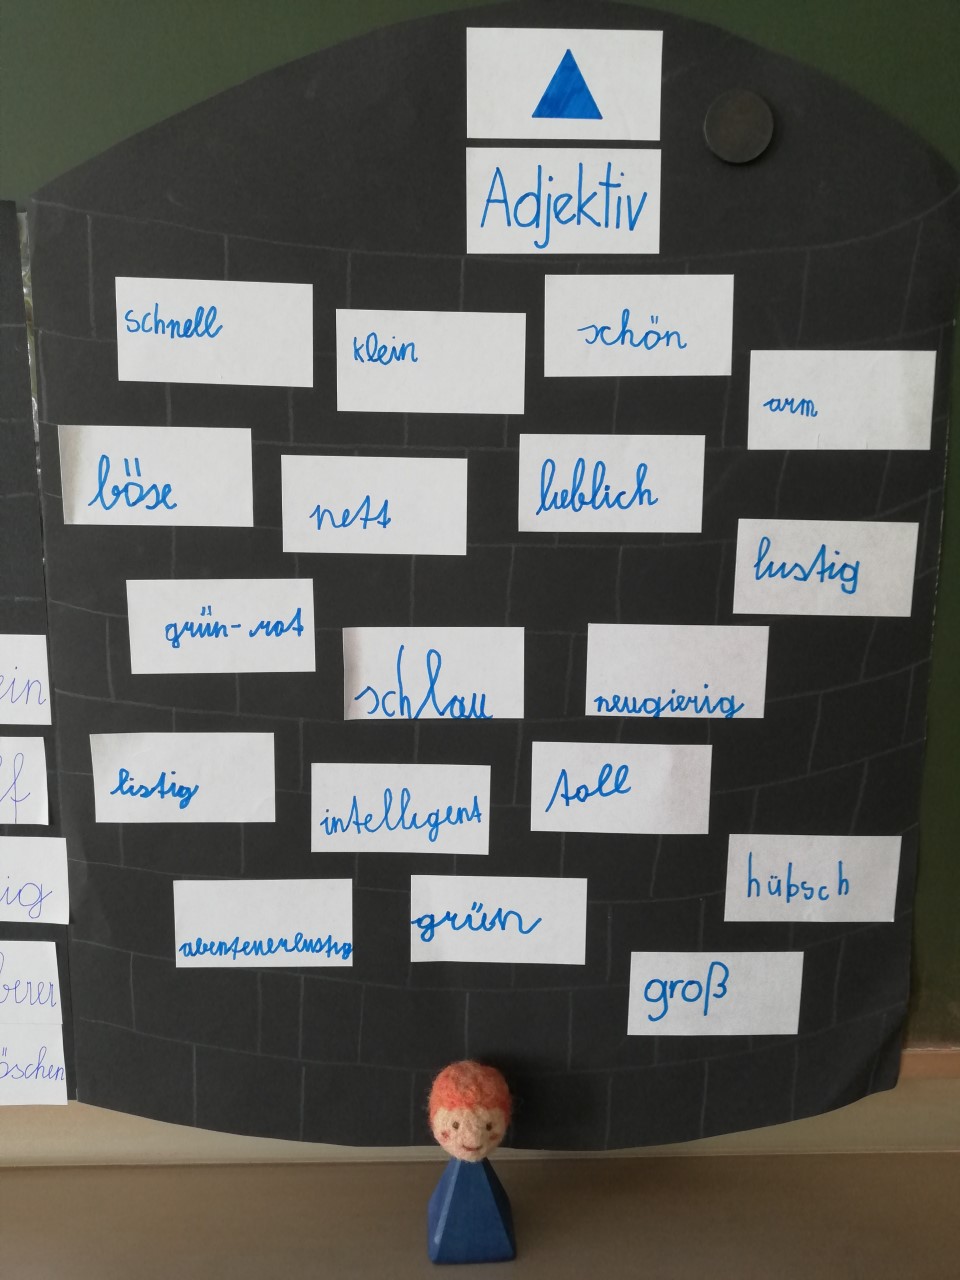 Adjektiv
schnell
klein
schön
arm
böse
nett
lieblich
lustig
grün-rot
schlau
neugierig
listig
intelligent
toll
hübsch
abenteuerlustig
grün
groß
ein
f
ig
berer
öschen